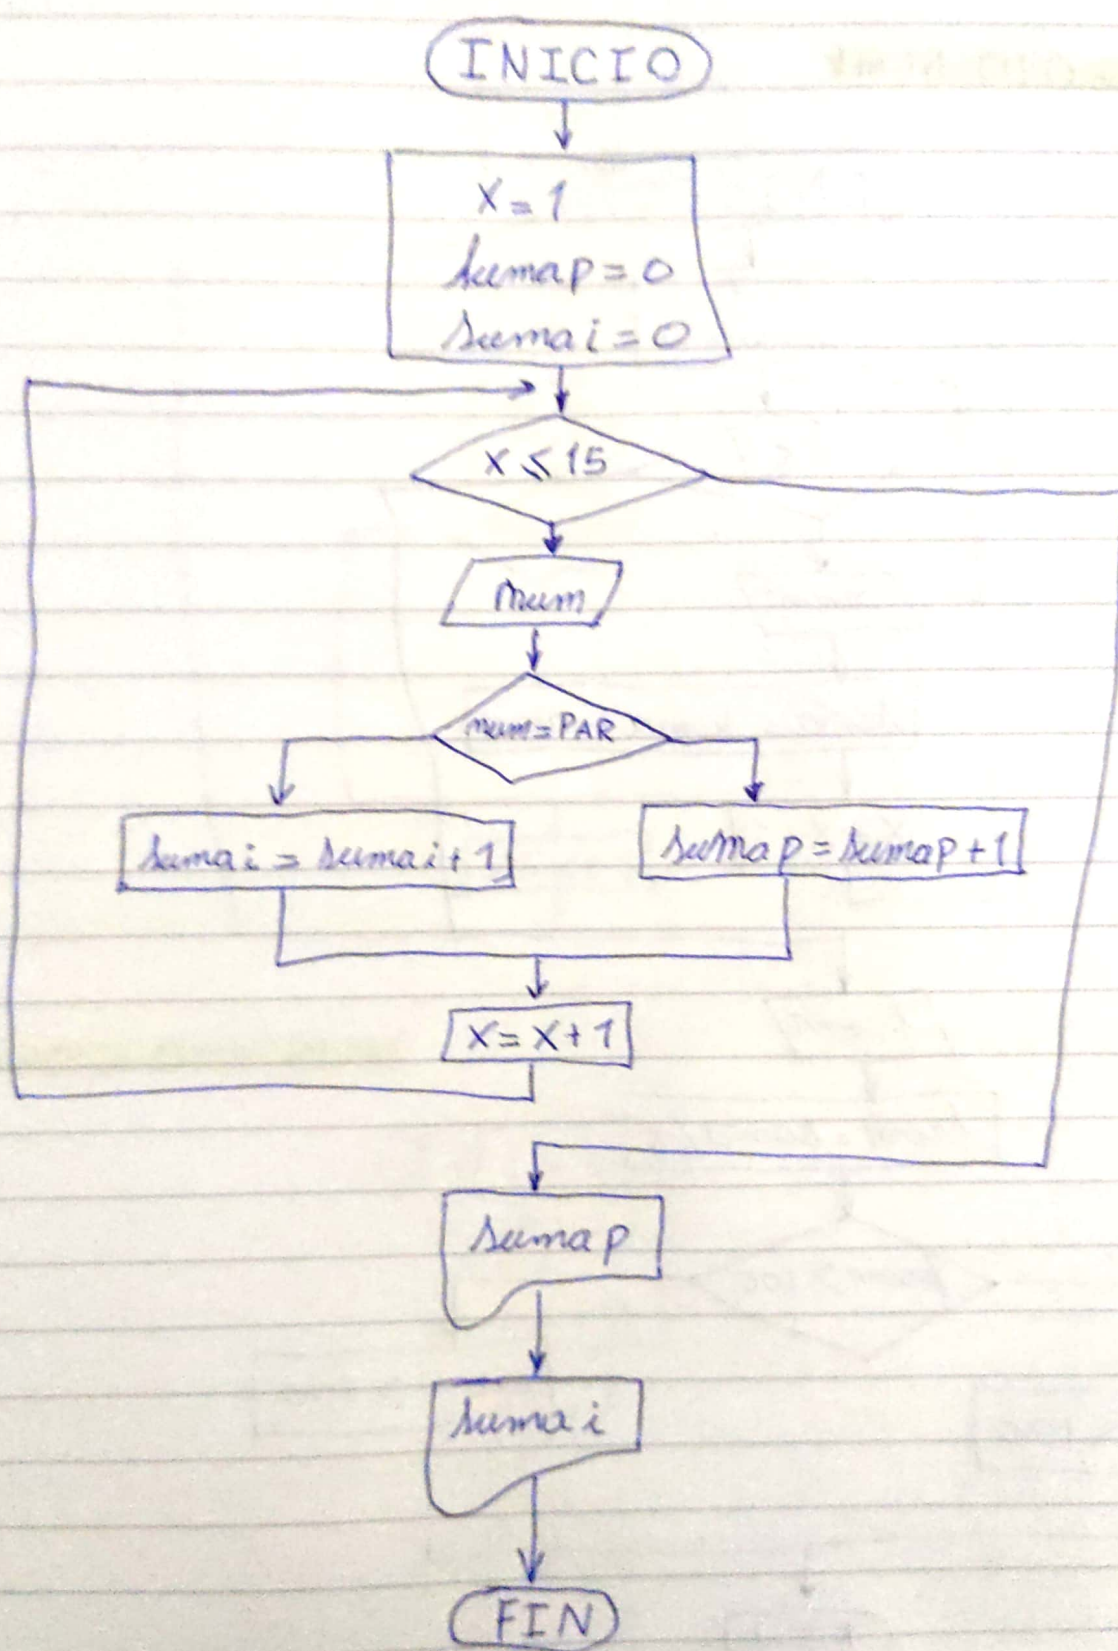 INICIO
X = 1
sumap = 0
sumai = 0
X ≤ 15
num
num = PAR
sumai = sumai + 1
sumap = sumap + 1
X = X + 1
sumap
sumai
FIN